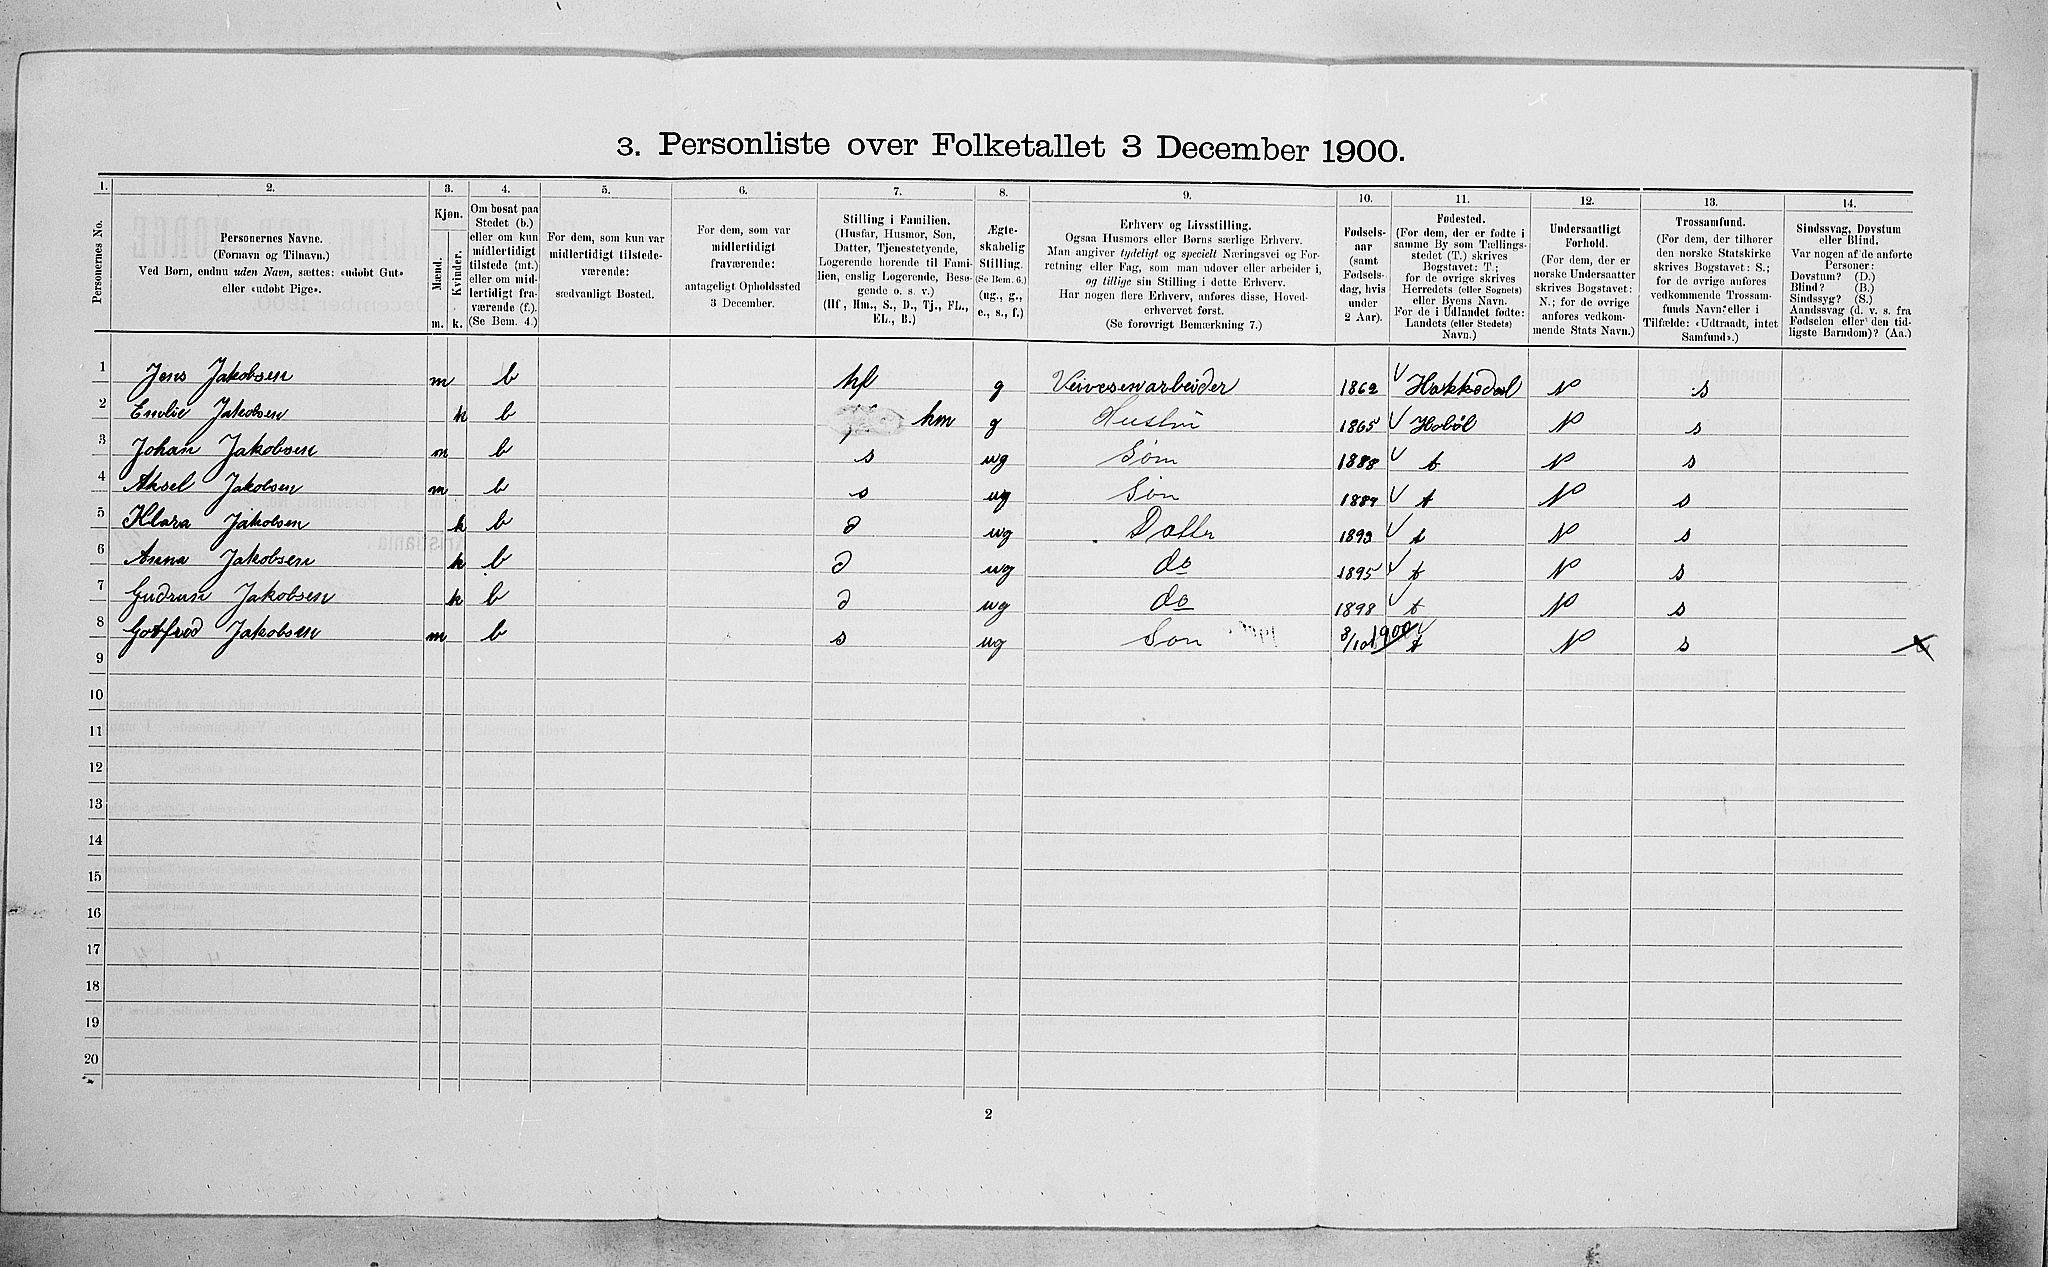 3. Personliste over Folketallet 3 December 1900.
1. 2. 3. 4. 5. 6. 7. 8. 9. 10. 11. 12. 13. 14.
Personernes No.
Personernes Navne.
(Fornavn og Tilnavn.)
Ved Børn, endnu uden Navn, sættes: «udøbt Gut»
eller «udøbt Pige».
Kjøn.
Mænd.
Kvinder.
m. k.
Om bosat paa
Stedet (b.)
eller om kun
midlertidigt
tilstede (mt.)
eller om mid-
lertidigt fra-
værende (f.).
(Se Bem. 4.)
For dem, som kun var
midlertidigt tilstede-
værende:
sædvanligt Bosted.
For dem, som var
midlertidigt
fraværende:
antageligt Opholdssted
3 December.
Stilling i Familien.
(Husfar, Husmor, Søn,
Datter, Tjenestetyende,
Logerende hørende til Fami-
lien, enslig Logerende, Besø-
gende o. s. v.)
(Hf, Hm., S., D., Tj., FL.,
EL., B.)
Ægte-
skabelig
Stilling.
(Se Bem. 6.)
(ug., g.,
e., s., f.)
Erhverv og Livsstilling.
Ogsaa Husmors eller Børns særlige Erhverv.
Man angiver tydeligt og specielt Næringsvei og For-
retning eller Fag, som man udøver eller arbeider i,
og tillige sin Stilling i dette Erhverv.
Har nogen flere Erhverv, anføres disse, Hoved-
erhvervet først.
(Se forøvrigt Bemærkning 7.)
Fødsels-
aar
(samt
Fødsels-
dag, hvis
under
2 Aar).
Fødested.
(For dem, der er fødte i
samme By som Tællings-
stedet (T.) skrives
Bogstavet: T.;
for de øvrige skrives
Herredets (eller Sognets)
eller Byens Navn.
For de i Udlandet fødte:
Landets (eller Stedets)
Navn.)
Undersaatligt
Forhold.
(For dem, der er
norske Undersaatter
skrives Bogstavet:
N.; for de øvrige
anføres vedkom-
mende Stats Navn.)
Trossamfund.
(For dem, der tilhører
den norske Statskirke
skrives Bogstavet: S.;
for de øvrige anføres
vedkommende Trossam-
funds Navn eller i
Tilfælde: «Udtraadt, intet
Samfund».)
Sindssvag, Døvstum
eller Blind.
Var nogen af de anførte
Personer:
Døvstum? (D.)
Blind? (B.)
Sindssyg? (S.)
Aandssvag (d. v. s. fra
Fødselen eller den tid-
ligste Barndom)? (Aa.)
1 Jens Jakobsen m b hf g Veivesenarbeider 1862 Hakkedal N s
2 Emilie Jakobsen k b hm g Hustru 1865 Hobøl N s
3 Johan Jakobsen m b s ug Søn 1888 t N s
4 Aksel Jakobsen m b s ug Søn 1889 t N s
5 Klara Jakobsen k b d ug Datter 1893 t N s
6 Anna Jakobsen k b d ug do 1895 t N s
7 Gudrun Jakobsen k b d ug do 1898 t N s
8 Gotfred Jakobsen m b s ug Søn 8/10 1900 t N s
9
10
11
12
13
14
15
16
17
18
19
20
2